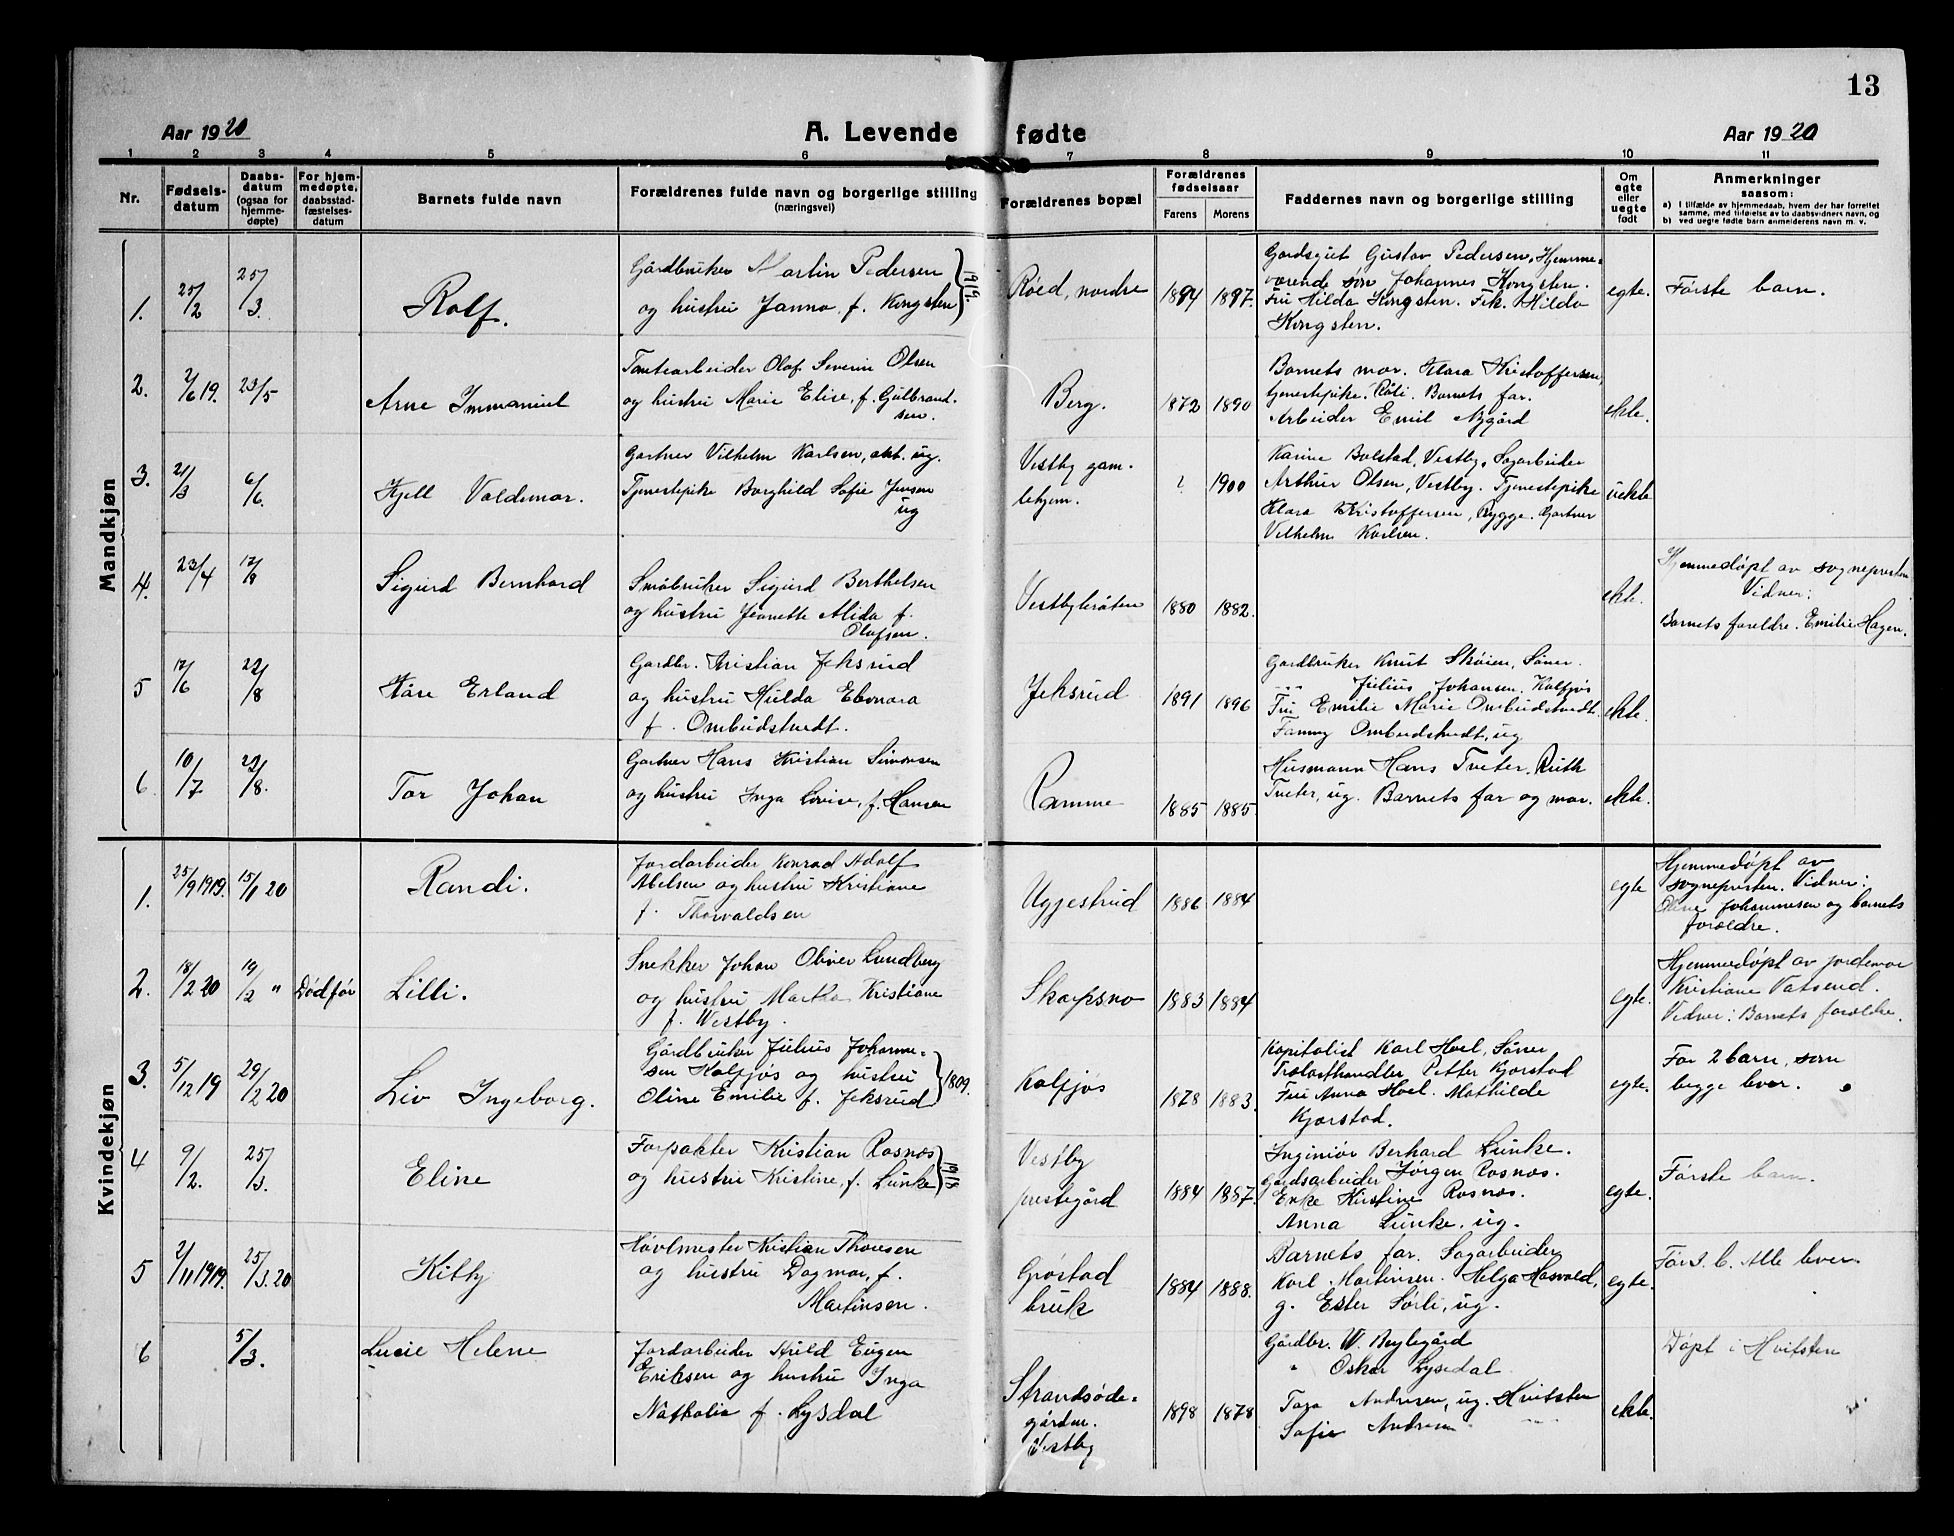 13
Aar 1920 A. Levende fødte Aar 1920
1 2 3 4 5 6 7 8 9 10 11
Nr.
Fødsels-
datum
Daabs-
datum
(ogsaa for
hjemme-
døpte)
For hjem-
medøpte,
daabsstad-
fæstelses-
datum
Barnets fulde navn
Forældrenes fulde navn og borgerlige stilling
(næringsvei)
Forældrenes bopæl
Forældrenes
fødselsaar
Farens Morens
Faddernes navn og borgerlige stilling
Om
egte
eller
uegte
født
Anmerkninger
saasom:
a) I tilfælde av hjemmedaab, hvem der har forrettet
samme, med tilføielse av to daabsvidners navn, og
b) ved uegte fødte barn anmelderens navn m. v.
Mandkjøn
1. 25/2 25/3. Rolf.
Gårdbruker Martin Pedersen
og hustru Janna, f. Kongsten 1919
Røed, nordre 1894 1897.
Gardsgut Gustav Pedersen, Hemme-
værende søn Johannes Kongsten.
Fru Hilda Kongsten. Frk. Hilda
Kongsten.
egte. Første barn.
2. 2/6 19. 23/5 Arne Immanuel
Tomtearbeider Olaf Severin Olsen
og hustru Marie Elise, f. Gulbrand-
sen.
Berg. 1872 1890
Barnets mor. Klara Kristoffersen,
tjenestepike. Barnets far.
Arbeider Emil Nygård
ekte.
3. 21/3 6/6. Kjell Valdemar.
Gartner Vilhelm Karlsen, ug.
Tjenestepike Borghild Sofie Jensen
ug
Vestby gam-
lehjem.
? 1900
Karine Bolstad, Vestby, Sagarbeider
Arthur Olsen, Vestby. Tjenestepike
Klara Kristoffersen, Rygge. Gartner
Vilhelm Karlsen.
uekte
4. 23/4 17/8 Sigurd Bernhard
Småbruker Sigurd Berthelsen
og hustru Jeanette Alida f.
Olafsen.
Vestbybråten 1880 1882.
ekte.
Hjemmedøpt av sognepresten
Vidner:
Barnets foreldre. Emilie Hagen.
5 17/6 22/8 Kåre Erland
Gardbr. Kristian Jeksrud
og hustru Hulda Eleonora
f. Ombudstvedt.
Jeksrud 1891 1896
Gardbruker Knut Skøien, Søner.
Julius Johansen. Kolfjøs
Fru Emilie Marie Ombudstvedt.
Fanny Ombudstvedt, ug
ekte.
6. 10/7 22/8. Tor Johan
Gartner Hans Kristian Simonsen
og hustru Inga Lovise, f. Hansen
Ramme 1885 1885
Husmann Hans Tveter. Ruth
Tveter, ug. Barnets far og mor.
ekte.
Kvindekjøn
1. 25/9 1919. 15/1 20 Randi.
Jordarbeider Konrad Adolf
Abelsen og hustru Kristiane
f. Thorvaldsen
Uggestrud 1886 1884
egte
Hjemmedøpt av
sognepresten. Vidner:
Oline Johannesen og barnets
forældre.
2. 18/2 20 19/2 " Død før Lilli.
Snekker Johan Oliver Lundberg
og hustru Martha Kristiane
f. Westby.
Skorpsno 1883 1884
egte.
Hjemmedøpt av jordemor
Kristiane Vatsend.
Vidner: Barnets forældre.
3. 5/12 19 29/2 20 Liv Ingeborg.
Gårdbruker Julius Johanne-
sen Kolfjøs og hustru
Oline Emilie f. Jeksrud 1809.
Kolfjøs 1878 1883.
Kapitalist Karl Hoel, Søner
Trælasthandler Petter Kjorstad
Fru Anna Hoel. Mathilde
Kjorstad.
egte.
Før 2 barn, som
begge lever.
4 9/2. 25/3. Eline
Forpakter Kristian Rosnæs
og hustru Kristine, f. Lunke
Vestby
prestegård
1884 1887.
Inginiør Berhard Lunke.
Gårdsarbeider Jørgen Rosnæs.
Enke Kirstine Rosnæs.
Anna Lunke, ug.
egte.
Første barn.
5 2/11 1919. 25/3. 20 Kitty
Høvlmester Kristian Thoresen
og hustru Dagmar, f.
Martinsen.
Grøstad
bruk
1884 1888.
Barnets far. Sagarbeider
Karl Martinsen. Helga Hasvold,
g. Ester Sørli, ug.
egte.
Før 3. b. Alle lever.
6 5/3. Lucie Helene
Jordarbeider Hrild Eugen
Eriksen og hustru Inga
Nathalia f. Lysdal
Strandsøde-
gården.
Vestby
1898 1878
Gårdbr. W. Bøylegård
" Oskar Lysedal
Andresen, ug. Hvitsten
Sofie Andresen
ekte.
Døpt i Hvitsten